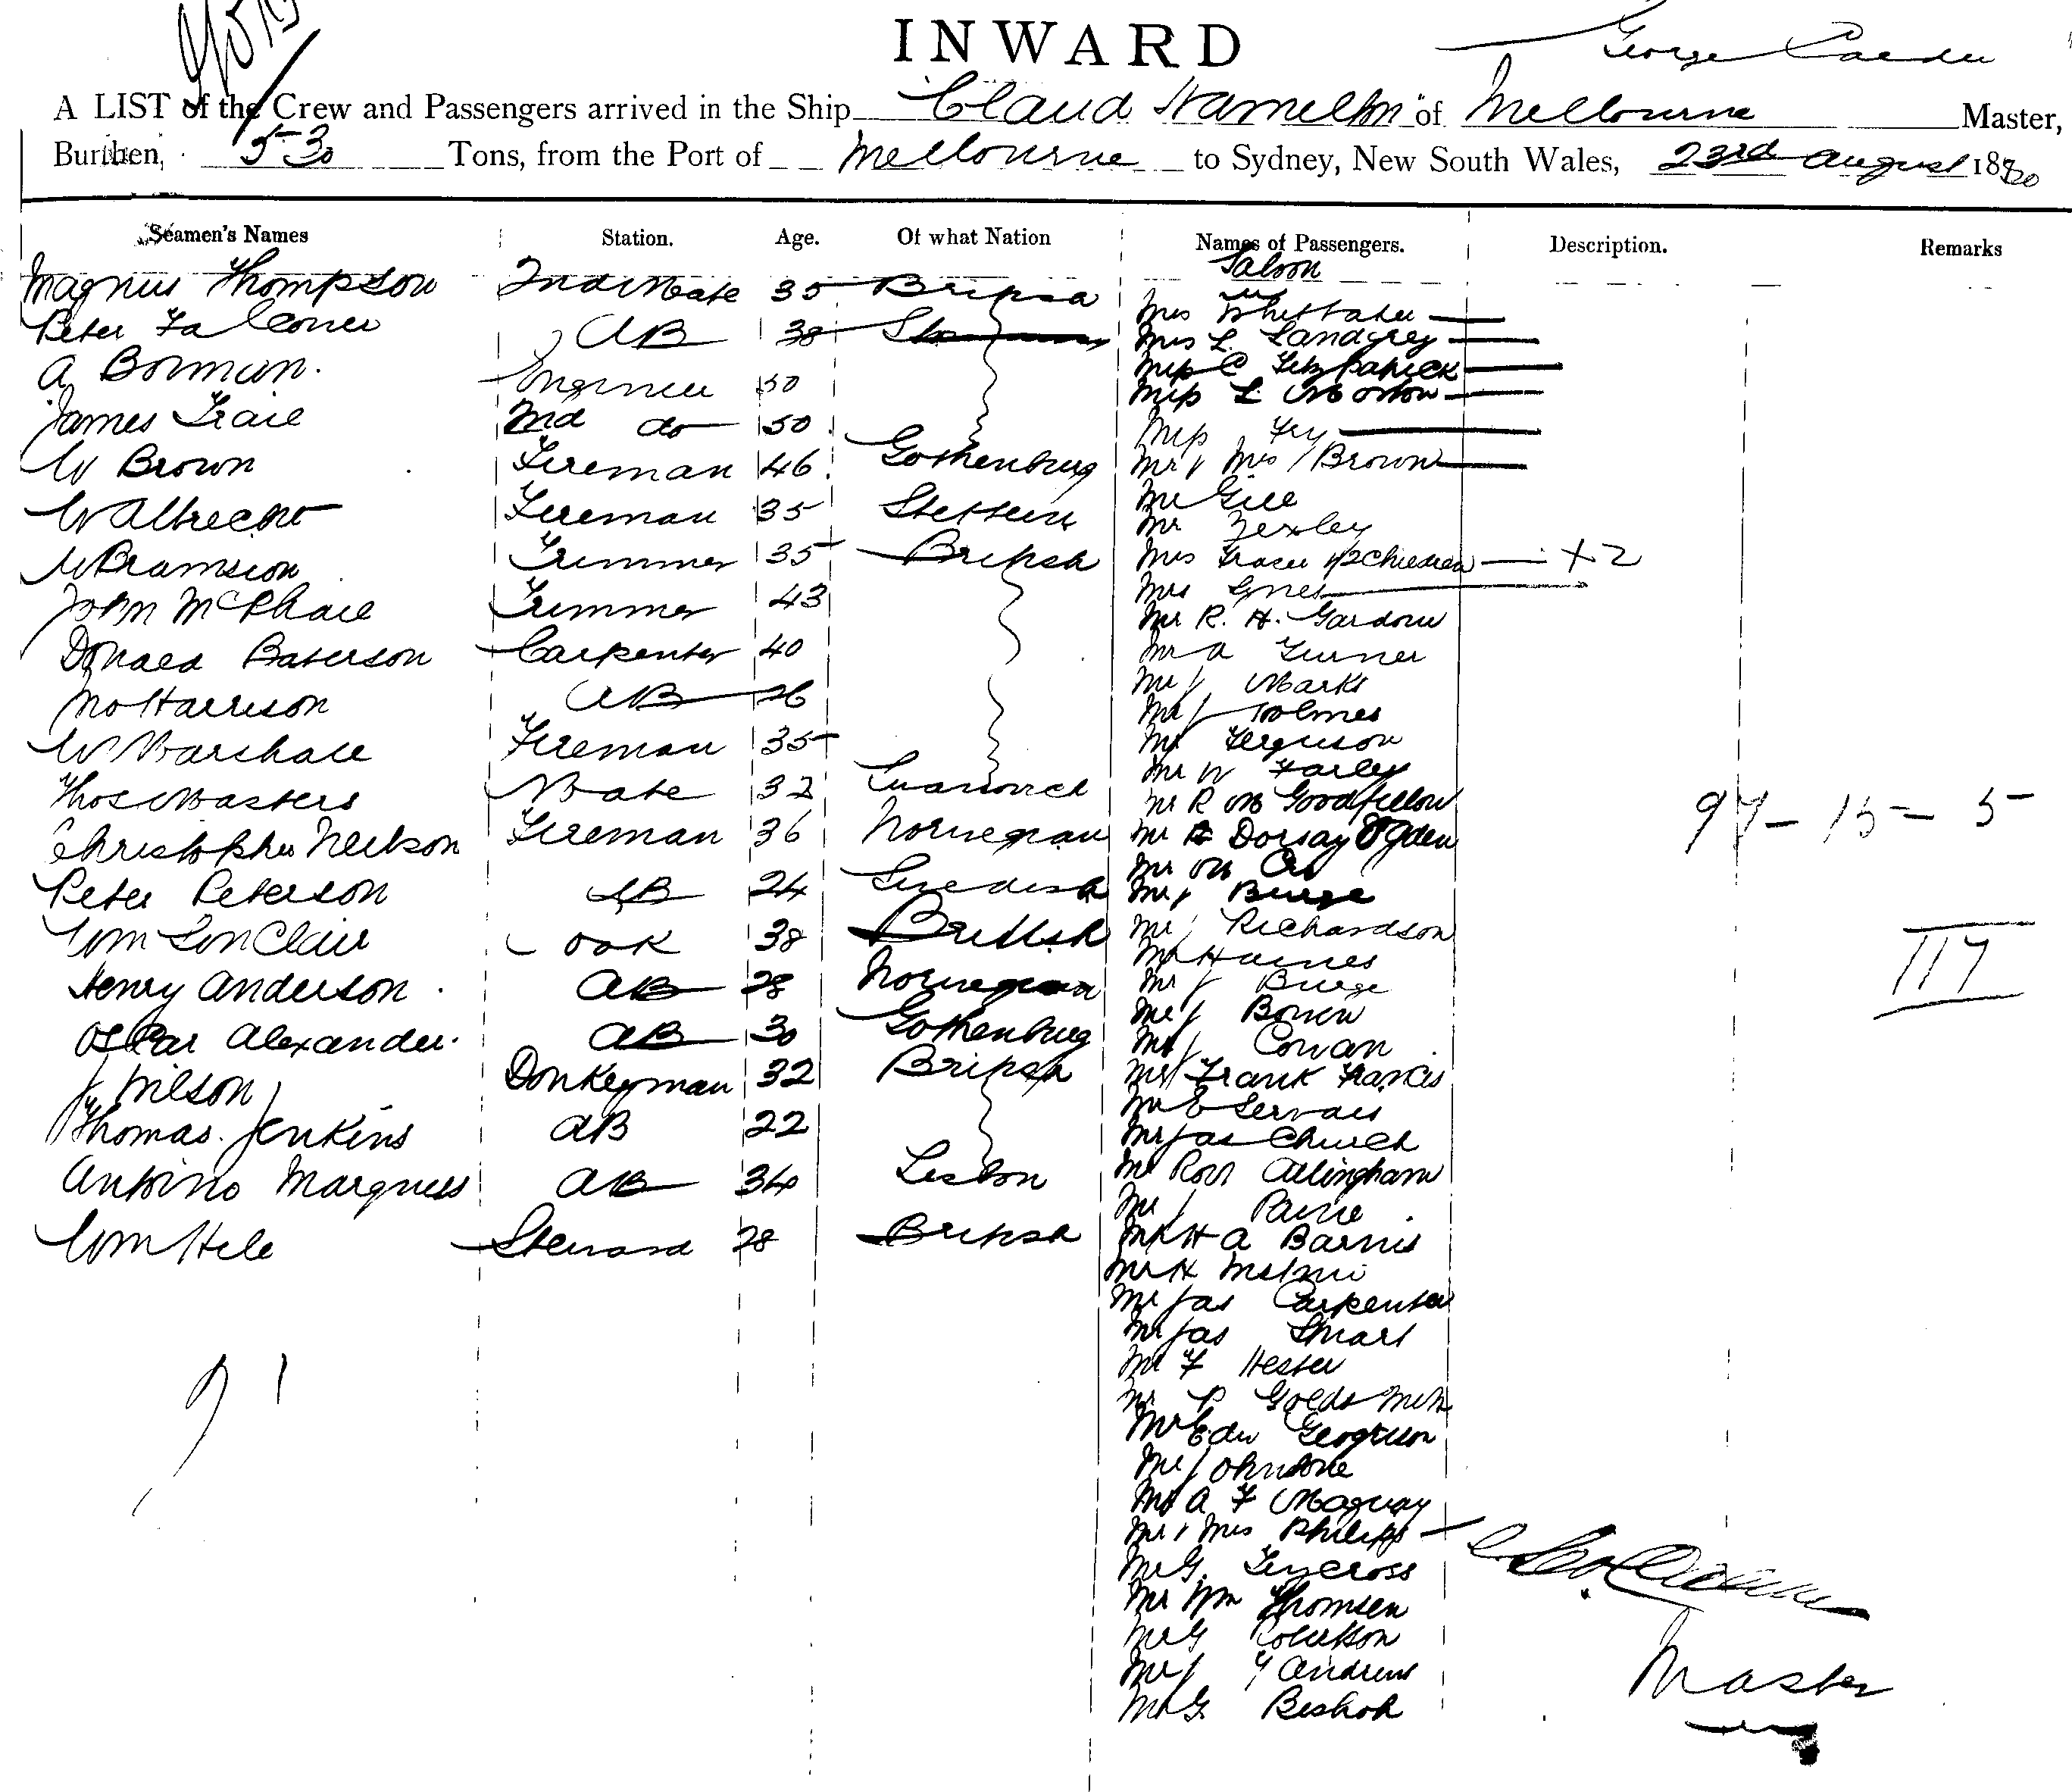 INWARD
George
A LIST of the Crew and Passengers arrived in the Ship Claud Hamilton of Melbourne Master,
Burthen, 530 Tons, from the Port of Melbourne to Sydney, New South Wales, 23rd August 1880
Seamen's Names Station. Age. Of what Nation Names of Passengers. Description. Remarks
Saloon
Magnus Thompson 2nd Mate 35 British Mrs Whittaker
Peter Falconer AB 38 Mrs L Landgrey
A Borman. Engineer 50 Miss C Fitzpatrick
Miss L Morton
James Traie 2nd do 50 Miss Fry
W Brown Fireman 46 Gothenburg Mr & Mrs Brown
Mr Gill
W Albrecht Fireman 35 Stettin Mr Zexley
W Bramsion Trimmer 35 British Mrs Fraser & 2 Children +2
Mrs
John McPhail Trimmer 43 Mr R. H.
Donald Paterson Carpenter 40 Mr A Turner
Mr J Marks
Jno Harrison AB 26 Mr J Holmes
W Marshall Fireman 35 Mr Ferguson
Mr W Farley
Thos Masters Mate 32 Mr R M Goodfellow
97-15-5
Christopher Neilson Fireman 36 Norwegian Mr Dorsay Ogden
Mr M
Peter Peterson AB 24 Swedish Mr J Burge
Wm SinClair Cook 38 British Mr J Richardson
117
Mr Haines
Henry Anderson AB 28 Norwegian Mr J Burge
Mr J Bowen
Oscar Alexander. AB 30 Gothenburg Mr J Cowan
J Wilson Donkeyman 32 British Mr Frank Francis
Mr E Gervais
Thomas Jenkins AB 22 Mr Jas Church
Antoino Marquess AB 34 Lisbon Mr Robt Allingham
Mr J Paine
Wm Hele Steward 28 British Mr H A Barnes
Mr H
Mr Jas Carpenter
Mr Jas Smart
Mr F Hester
Mr P Goldsmith
Mr Edw
Mr Johnstone
Mr A F Maquay
Mr & Mrs Philips
Mr G.
Mr Wm Thomsen
Mr G Robertson
Mr J Y Andrews
Master
Mr G. Bishop